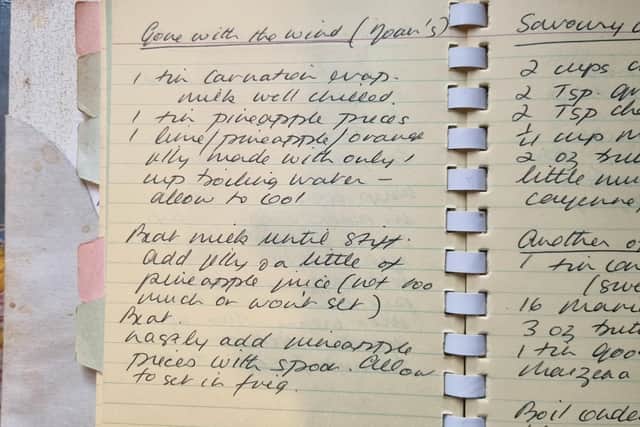 Gone with the wind (Noan's)
1 tin carnation evap.
milk well chilled.
1 tin pineapple pieces
1 lime/pineapple/orange
jelly made with only 1
cup boiling water –
allow to cool
Beat milk until stiff.
Add jelly & a little of
pineapple juice (not too
much or won't set)
Beat.
Lastly add pineapple
pieces with spoon. Allow
to set in frig.
Savoury
2 cups
2 Tsp
2 Tsp
1/4 cup
2 oz
little
cayenne,
Another of
1 tin
16
3 oz
1 tin
Maizena
Boil